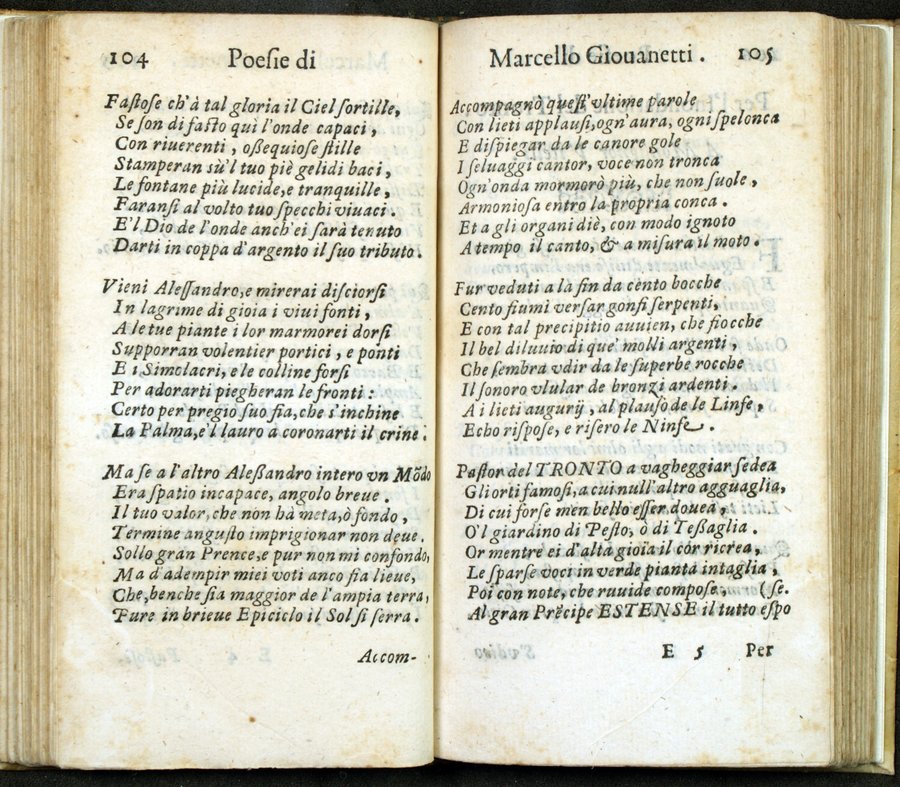 104 Poesie di
Fastose ch'à tal gloria il Ciel sortille,
Se son di fasto quì l'onde capaci,
Con riuerenti, oßequiose stille
Stamperan sù'l tuo piè gelidi baci,
Le fontane più lucide,e tranquille,
Faransi al volto tuo specchi viuaci.
E'l Dio de l'onde anch'ei sarà tenuto
Darti in coppa d'argento il suo tributo.
Vieni Alessandro,e mirerai disciorsi
In lagrime di gioia i viui fonti,
A le tue piante i lor marmorei dorsi
Supporran volentier portici, e ponti
E i, Simolacri, e le colline forsi
Per adorarti piegheran le fronti:
Certo per pregio suo fia,che s'inchine
La Palma,e'l lauro a coronarti il crine.
Ma se a l'altro Aleßandro intero vn Mõdo
Era spatio incapace, angolo breue.
Il tuo valor,che non hà meta,ò fondo,
Termine angusto imprigionar non deue.
Sollo gran Prence,e pur non mi confondo,
Ma d'adempir miei voti anco fia lieue,
Che,benche sia maggior de l'ampia terra,
Pure in brieue Epiciclo il Sol si serra.
Accom-
Marcello Giouanetti. 105
Accompagnò quest'vltime parole
Con lieti applausi,ogn'aura, ogni spelonca
E dispiegar da le canore gole
I seluaggi cantor, voce non tronca
Ogn'onda mormorò più, che non suole,
Armoniosa entro la propria conca.
Et a gli organi diè, con modo ignoto
A tempo il canto, & a misura il moto.
Fur veduti a là fin da cento bocche
Cento fiumi versar gonfi serpenti,
E con tal precipitio auuien, che fiocche
Il bel diluuio di que' molli argenti,
Che sembra vdir da le superbe rocche
Il sonoro vlular de bronzi ardenti.
A i lieti augurij, al plauso de le Linfe,
Echo rispose, e risero le Ninfe.
Pastor del TRONTO a vagheggiar sedea
Gli orti famosi, a cui null'altro agguaglia,
Di cui forse men bello esser douea,
O'l giardino di Pesto, ò di Teßaglia.
Or mentre ei d'alta gioia il còr ricrea,
Le sparse voci in verde pianta intaglia,
Poi con note, che ruuide compose, (se.
Al gran Prẽcipe ESTENSE il tutto espo
E 5 Per